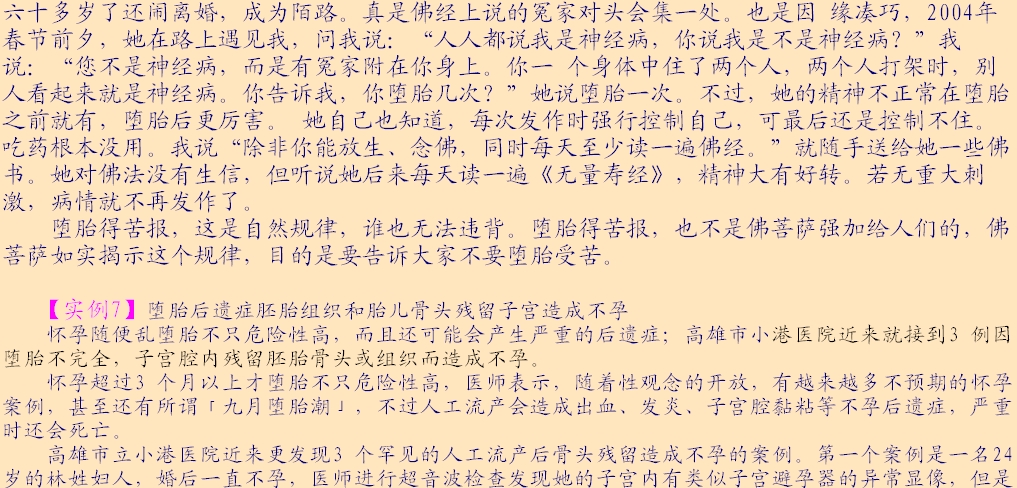 六十多岁了还闹离婚，成为陌路。真是佛经上说的冤家对头会集一处。也是因 缘凑巧，2004年
春节前夕，她在路上遇见我，问我说：“人人都说我是神经病，你说我是不是神经病？”我
说：“您不是神经病，而是有冤家附在你身上。你一 个身体中住了两个人，两个人打架时，别
人看起来就是神经病。你告诉我，你堕胎几次？”她说堕胎一次。不过，她的精神不正常在堕胎
之前就有，堕胎后更厉害。 她自己也知道，每次发作时强行控制自己，可最后还是控制不住。
吃药根本没用。我说“除非你能放生、念佛，同时每天至少读一遍佛经。”就随手送给她一些佛
书。她对佛法没有生信，但听说她后来每天读一遍《无量寿经》，精神大有好转。若无重大刺
激，病情就不再发作了。
堕胎得苦报，这是自然规律，谁也无法违背。堕胎得苦报，也不是佛菩萨强加给人们的，佛
菩萨如实揭示这个规律，目的是要告诉大家不要堕胎受苦。
【实例7】堕胎后遗症胚胎组织和胎儿骨头残留子宫造成不孕
怀孕随便乱堕胎不只危险性高，而且还可能会产生严重的后遗症；高雄市小港医院近来就接到3 例因
堕胎不完全，子宫腔内残留胚胎骨头或组织而造成不孕。
怀孕超过3 个月以上才堕胎不只危险性高，医师表示，随着性观念的开放，有越来越多不预期的怀孕
案例，甚至还有所谓「九月堕胎潮」，不过人工流产会造成出血、发炎、子宫腔黏粘等不孕后遗症，严重
时还会死亡。
高雄市立小港医院近来更发现3 个罕见的人工流产后骨头残留造成不孕的案例。第一个案例是一名24
岁的林姓妇人，婚后一直不孕，医师进行超音波检查发现她的子宫内有类似子宫避孕器的异常显像，但是